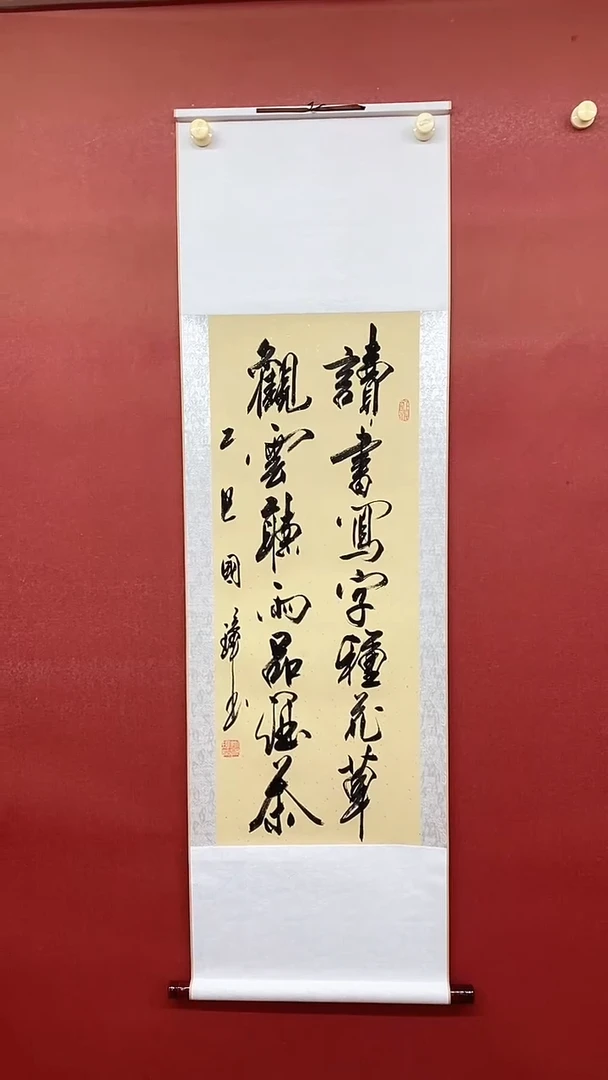 讀書寫字種花草
觀雲聽雨品茶
乙巳國书